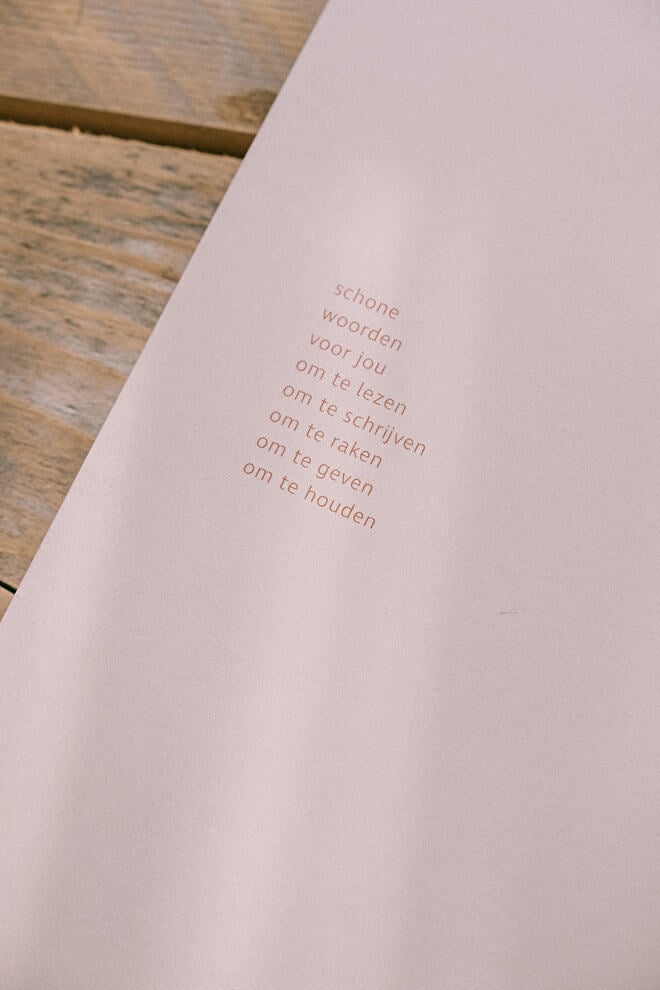 schone
woorden
voor jou
om te lezen
om te schrijven
om te raken
om te geven
om te houden